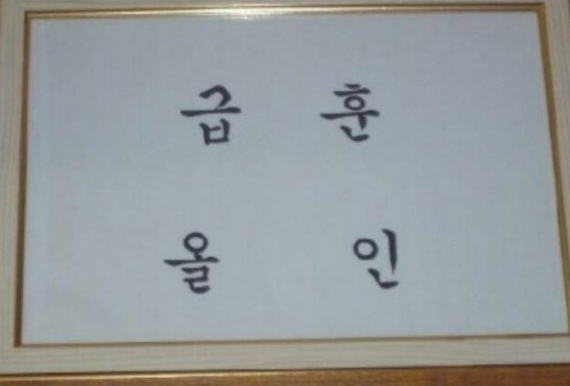 급훈
올인